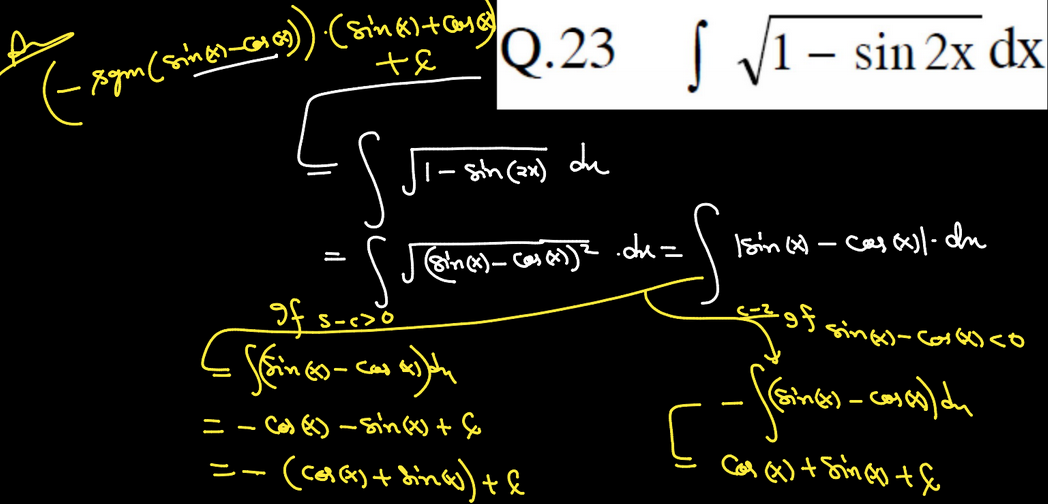 Ans
(- sgm(sin(x)-cos(x)))·(sin(x)+cos(x))
+ C
Q.23 ∫ √1 − sin 2x dx
= ∫ √1 - sin(2x) dx
= ∫ √(sin(x) - cos(x))² · dx = ∫ |sin(x) - cos(x)| · dx
If s-c>0
c-2 If sin(x) - cos(x) < 0
= ∫(sin(x) - cos(x))dx
= - cos(x) - sin(x) + C
= - (cos(x) + sin(x)) + C
- ∫(sin(x) - cos(x))dx
= cos(x) + sin(x) + C